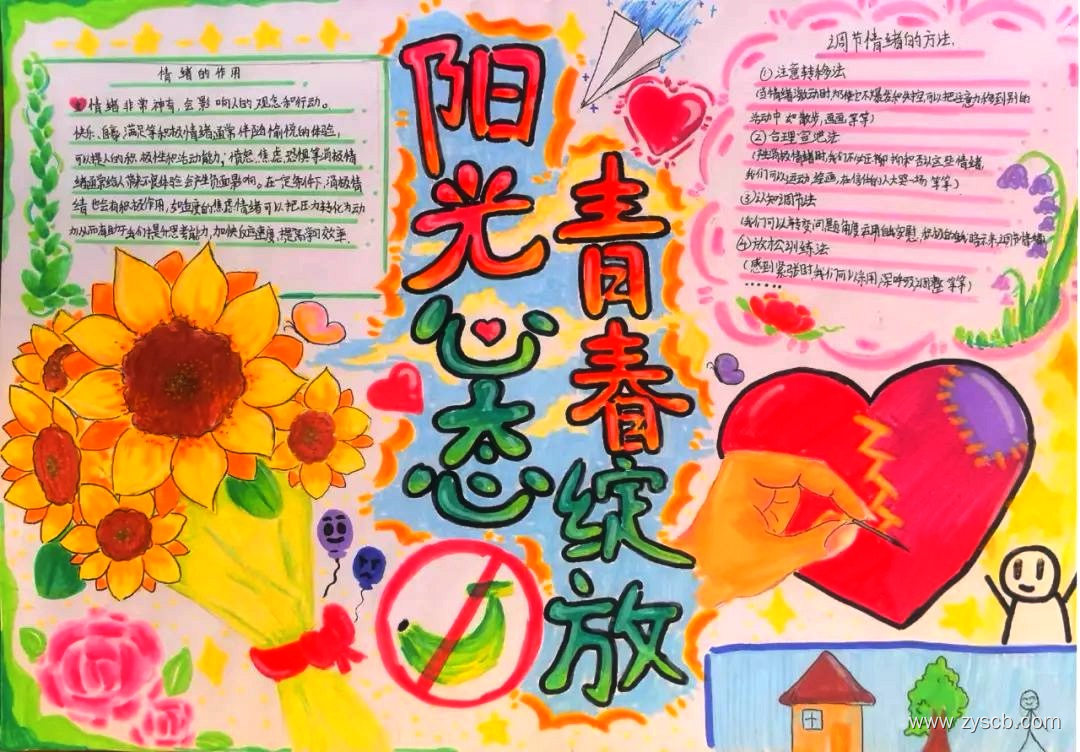 情绪的作用
情绪非常神奇，会影响人的观念和行动。
快乐、自豪、满足等积极情绪通常伴随愉悦的体验，
可以提人的积极性和活动能力，愤怒、焦虑、恐惧等消极情
绪通常给人带来不良体验会产生负面影响。在一定条件下，消极情
绪也会有积极作用，如适度的焦虑情绪可以把压力转化为动
力从而有助于我们提升思考能力，加快反应速度，提高学习效率。
阳光心态
青春绽放
调节情绪的方法.
①注意转移法
(当情绪激动时为使它不爆发和失控可以把注意力移到别的
活动中如散步,画画等等)
②合理宣泄法
(产生消极情绪时我们不必压抑和否认这些情绪,
我们可以运动,绘画,在信任的人大哭一场等等)
③认知调节法
(我们可以转变问题角度运用自我安慰,积极的自我暗示来调节情绪)
④放松训练法
(感到紧张时我们可以采用,深呼吸,调整等等)
......
www.zyscb.com